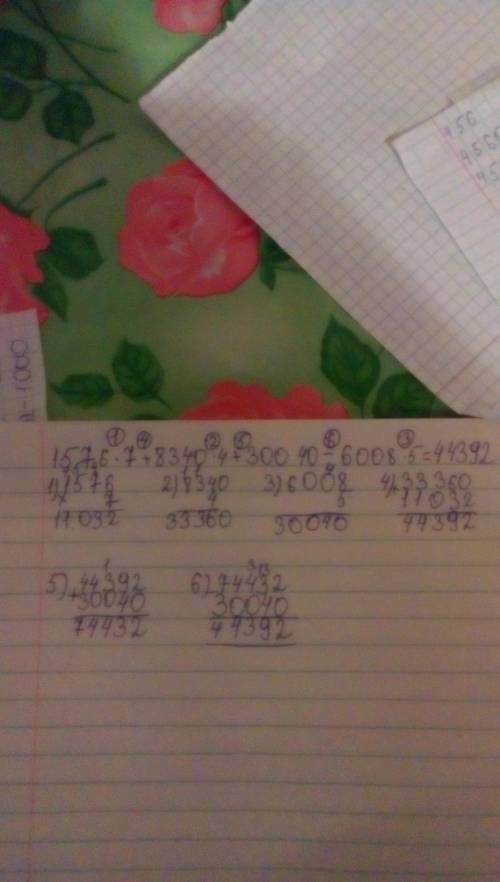 456
456
45
a-1000
① ④ ② ⑤ ⑥ ③
1576·7+8340·4+30040-6008·5=44392
1) 1576 2) 8340 3) 6008 4) 33360
× 7 4 5 11032
11.032 33360 30040 44392
5) 44392 6) 74432
+30040 30040
74432 44392